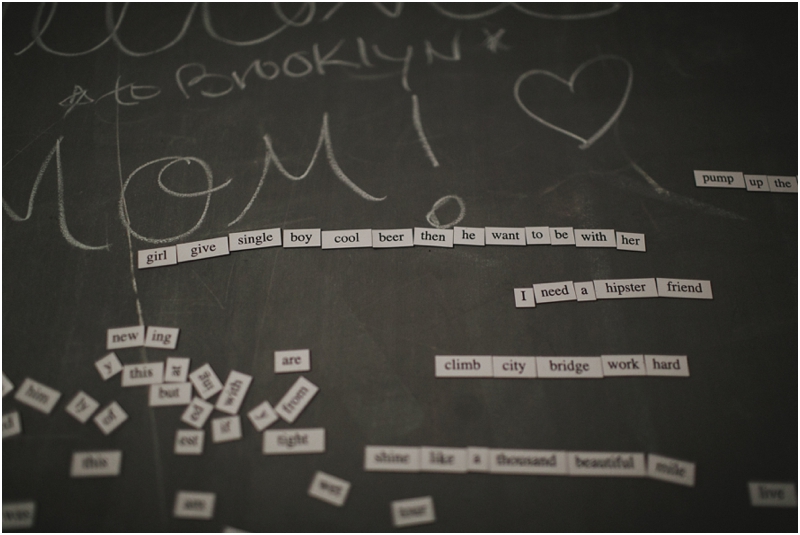 *to BROOKLYN*
MOM!
pump up the
girl give single boy cool beer then he want to be with her
I need a hipster friend
new ing
climb city bridge work hard
are
y this at
but with
him ly of ed from
est if
tight
this
shine like a thousand beautiful mile
live
am
tour
was